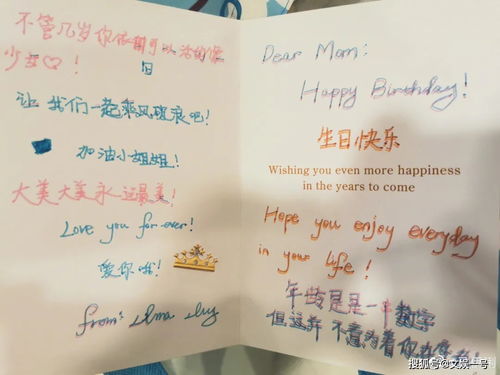 不管几岁你依旧可以活的像
少女♡！
让我们一起乘风破浪吧！
加油小姐姐！
大美大美永远最美！
Love you for ever!
爱你哦！
from:
Dear Mom:
Happy Birthday!
生日快乐
Wishing you even more happiness
in the years to come
Hope you enjoy everyday
in your life!
年龄是是一串数字
但这并不意为着你
搜狐号@文娱一号